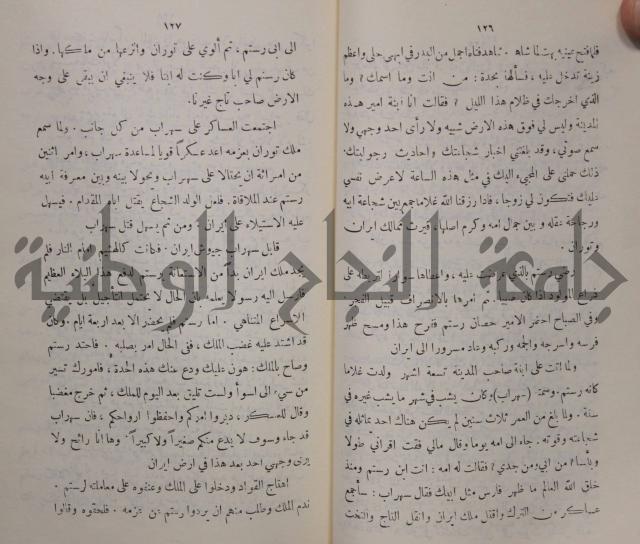 ١٢٦
فلما فتح عينيه بهت لما شاهد . شاهد فتاة اجمل من البدر في ابهى حلى واعظم
زينة تدخل عليه ، فسألها بحدة : من انت وما اسمك ؟ وما
الذي اخرجك في ظلام هذا الليل ؟ فقالت انا ابنة امير هذه
المدينة وليس لي فوق هذه الارض شبيه ولا رأى احد وجهي ولا
سمع صوتي ، وقد بلغني اخبار شجاعتك واحاديث رجوليتك
ذلك حملني على المجيء اليك في مثل هذه الساعة لاعرض نفسي
عليك فتكون لي زوجا ، فاذا رزقنا الله غلاما جمع بين شجاعة ابيه
ورجاحة عقله و بين جمال امه وكرم اصلها، فيرث ممالك ايران
وتوران .
رضي رستم بالذي عرضت عليه ، واعطاها سوارا لتربطه على
ذراع المولود اذا كان صبيا . ثم امرها بالانصراف قبيل الفجر
وفي الصباح احضر الامير حصان رستم ففرح هذا ومسح ظهر
فرسه واسرجه والجمه وركبه وعاد مسرورا الى ايران
ولما اتت على ابنة صاحب المدينة تسعة اشهر ولدت غلاما
كانه رستم . وسمته (سهراب) وكان يشب في شهر ما يشب غيره في
سنة . ولما بلغ من العمر ثلاث سنين لم يكن هناك احد يماثله في
شجاعته وقوته . جاء الى امه يوما وقال مالي فقت اقراني طولا
وباسا؟ من ابي ومن جدي؟ فقالت له امه : انت ابن رستم ومنذ
خلق الله العالم ما ظهر فارس مثل ابيك فقال سهراب : سأجمع
عساكر من الترك واقتل ملك ايران وانقل التاج والتخت
١٢٧
الى ابي رستم ، ثم ألوي على توران وانزعها من ملكها . واذا
كان رستم لي ابا وكنت له ابنا فلا ينبغي ان يبقى على وجه
الارض صاحب تاج غيرنا .
اجتمعت العساكر على سهراب من كل جانب . ولما سمع
ملك توران بعزمه اعد عسكرا قويا لمساعدة سهراب، وامر اثنين
من امرائه ان يحتالا على سهراب ويحولا بينه وبين معرفة ابيه
رستم عند الملاقاة . فلعل الولد الشجاع يقتل اباه المقدام . فيسهل
عليه الاستيلاء على ايران . ومن ثم يسهل قتل سهراب
قابل سهراب جيوش ايران . فكانت كالهشيم امام النار فلم
يجد ملك ايران بدا من الاستعانة برستم لدفع هذا البلاء العظيم
فارسل اليه رسولا يعلمه بان الحال لا يحتمل التأجيل بل يقتضي
الاسراع المتناهي . اما رستم فلم يحضر الا بعد اربعة ايام . وكان
قد اشتد عليه غضب الملك ، ففي الحال امر بصلبه . فاحتد رستم
وصاح بالملك : هون عليك ودع عنك هذه الحدة ، فامورك تسير
من سيء الى اسوأ ولست تليق بعد اليوم للملك ، ثم خرج مغضبا
وقال للعسكر ، دبروا امركم واحفظوا ارواحكم ، فان سهراب
قد جاء وسوف لا يدع منكم صغيرا ولا كبيرا . وها انا رائح ولا
يرى وجهي احد بعد هذا في ارض ايران
اهتاج القواد ودخلوا على الملك وعنفوه على معاملته لرستم .
ندم الملك وطلب منهم ان يردوا رستم عن عزمه . فلحقوه وقالوا
جامعة النجاح الوطنية